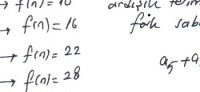 → f(n)=10
→ f(n)=16
→ f(n)=22
→ f(n)=28
ardışık terim
fark sab
a₅+a